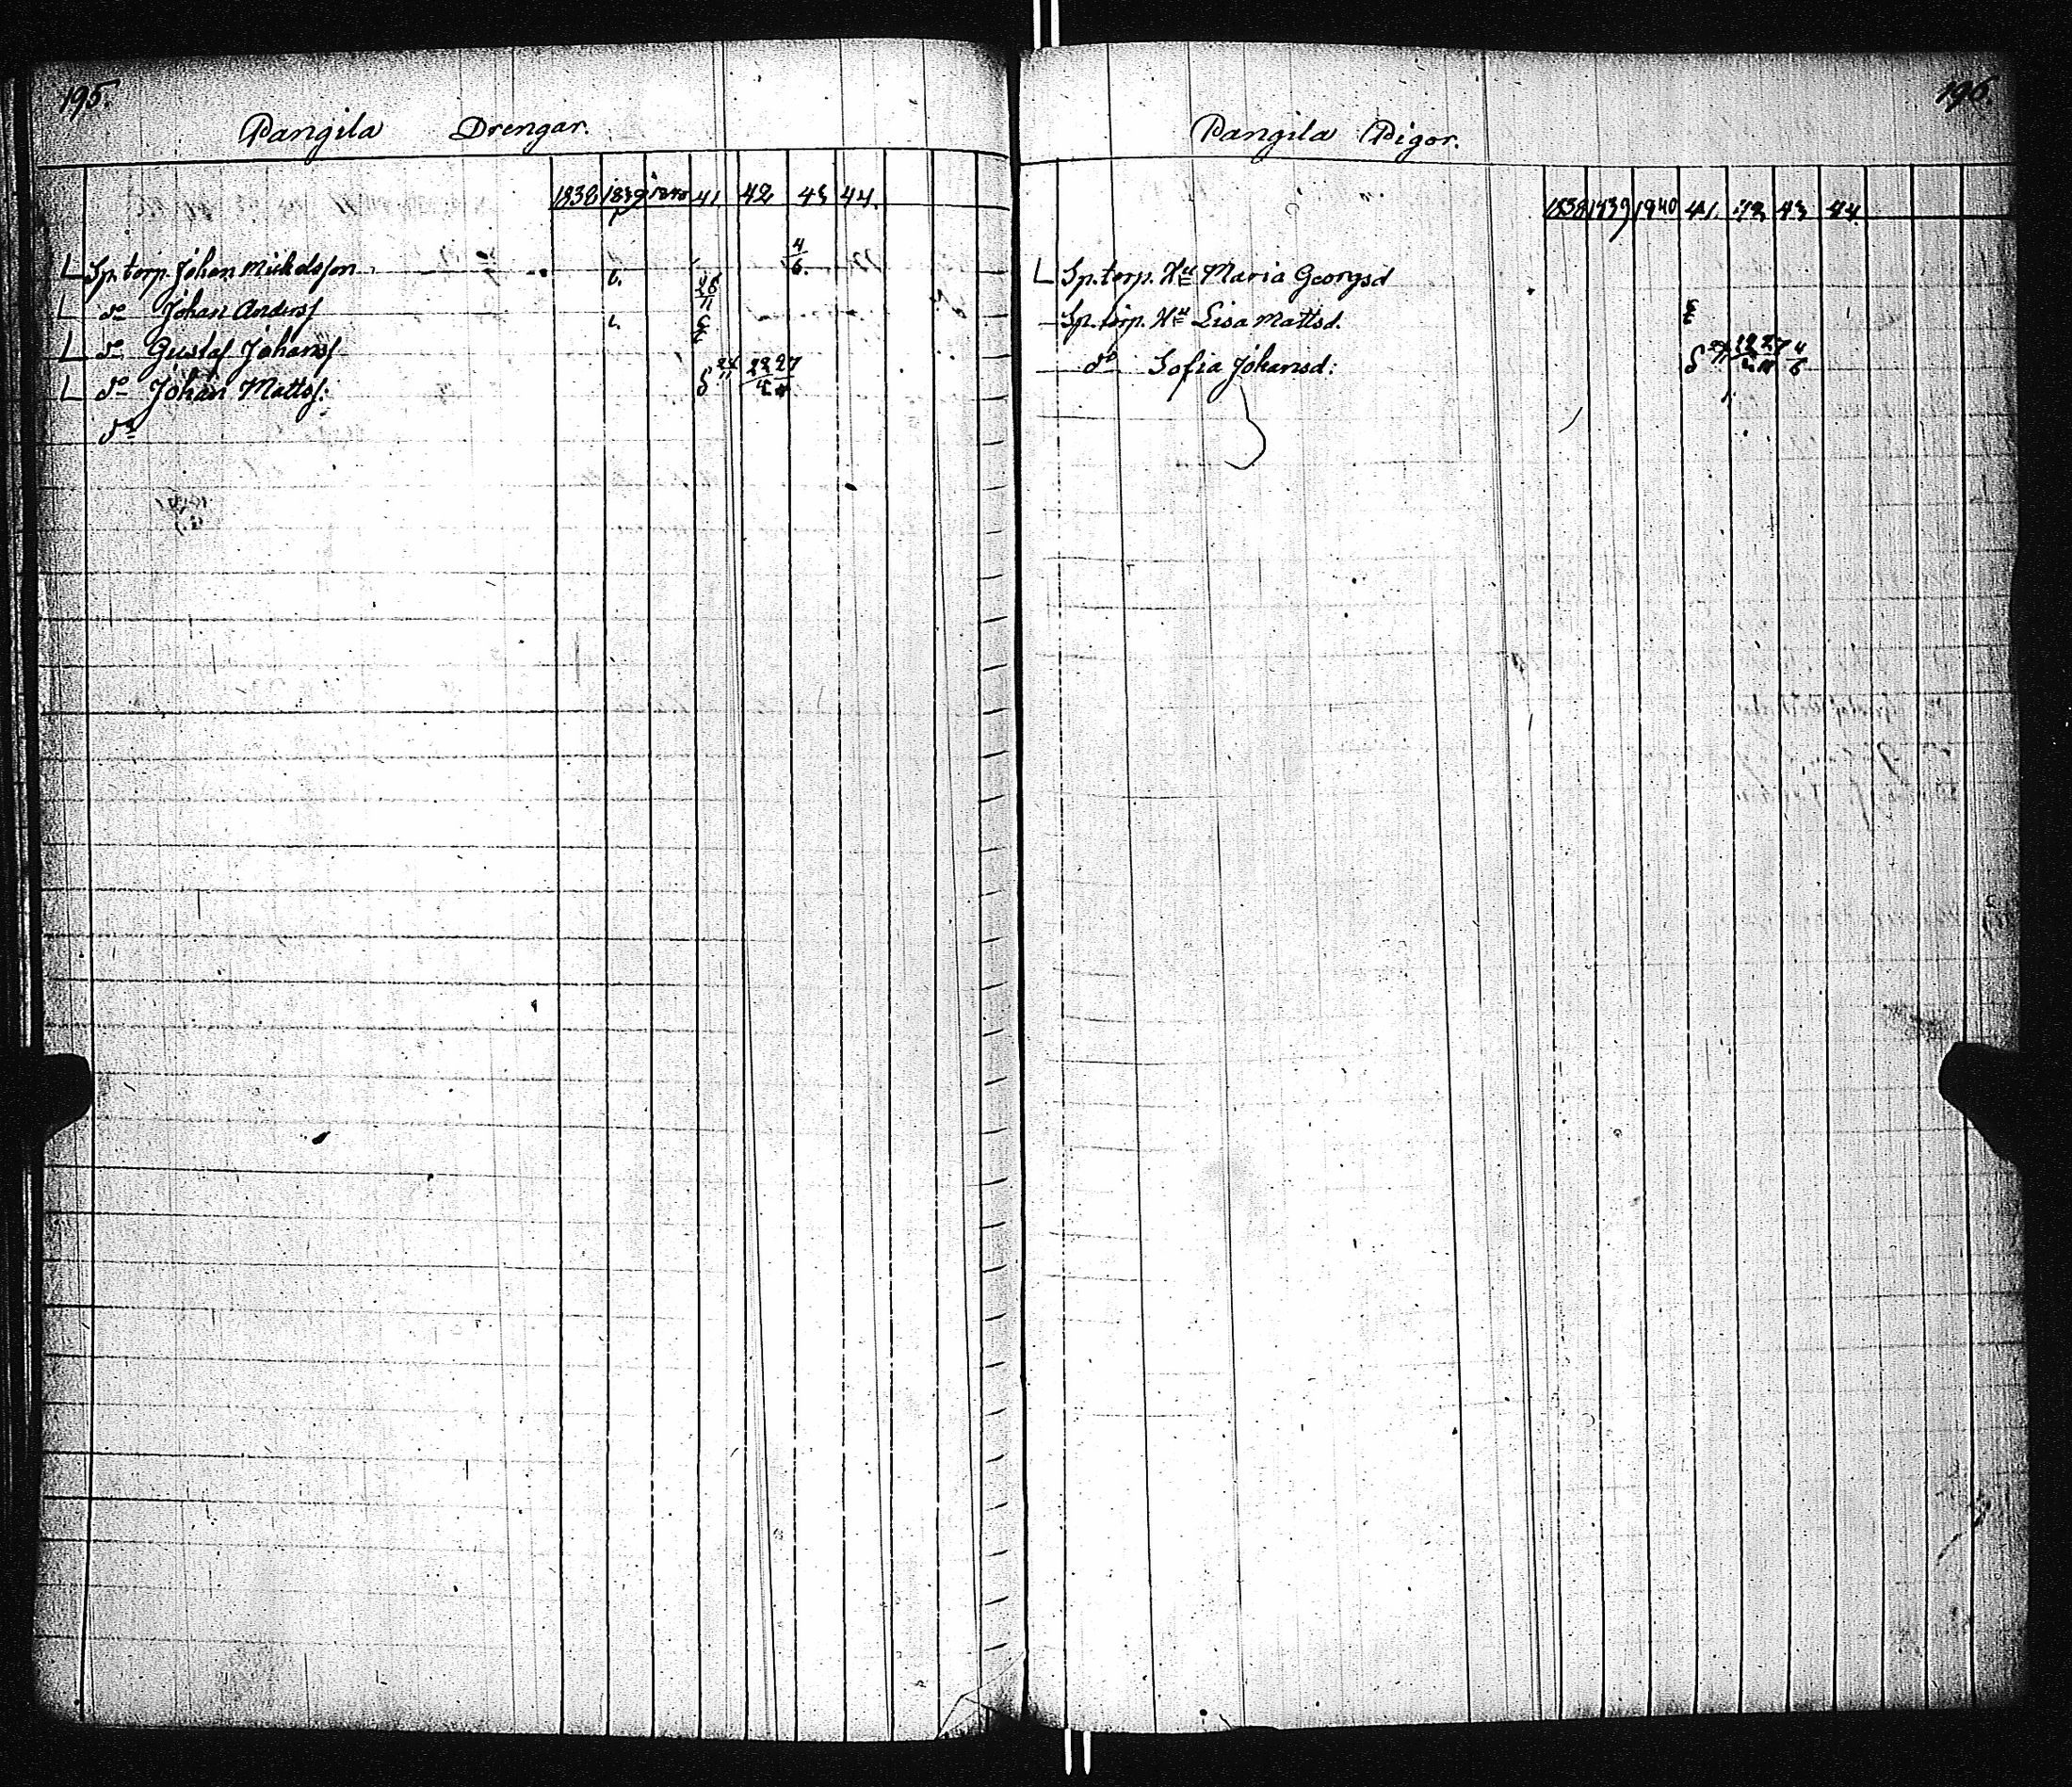 195.
Pangila Drengar.
1838 1839 1840 41. 42 43 44.
Sp. torp. Johan Mickelsson 4/6.
do Johan Anders 26/11
do Gustaf Johans
do Johan Matts: 24/11 27
do
196.
Pangila Pigor.
1838 1839 1840 41. 42 43 44.
Sp. torp. Hu Maria Georgsd
Sp. torp. Hu Lisa Mattsd.
do Sofia Johansd: 27 4/6